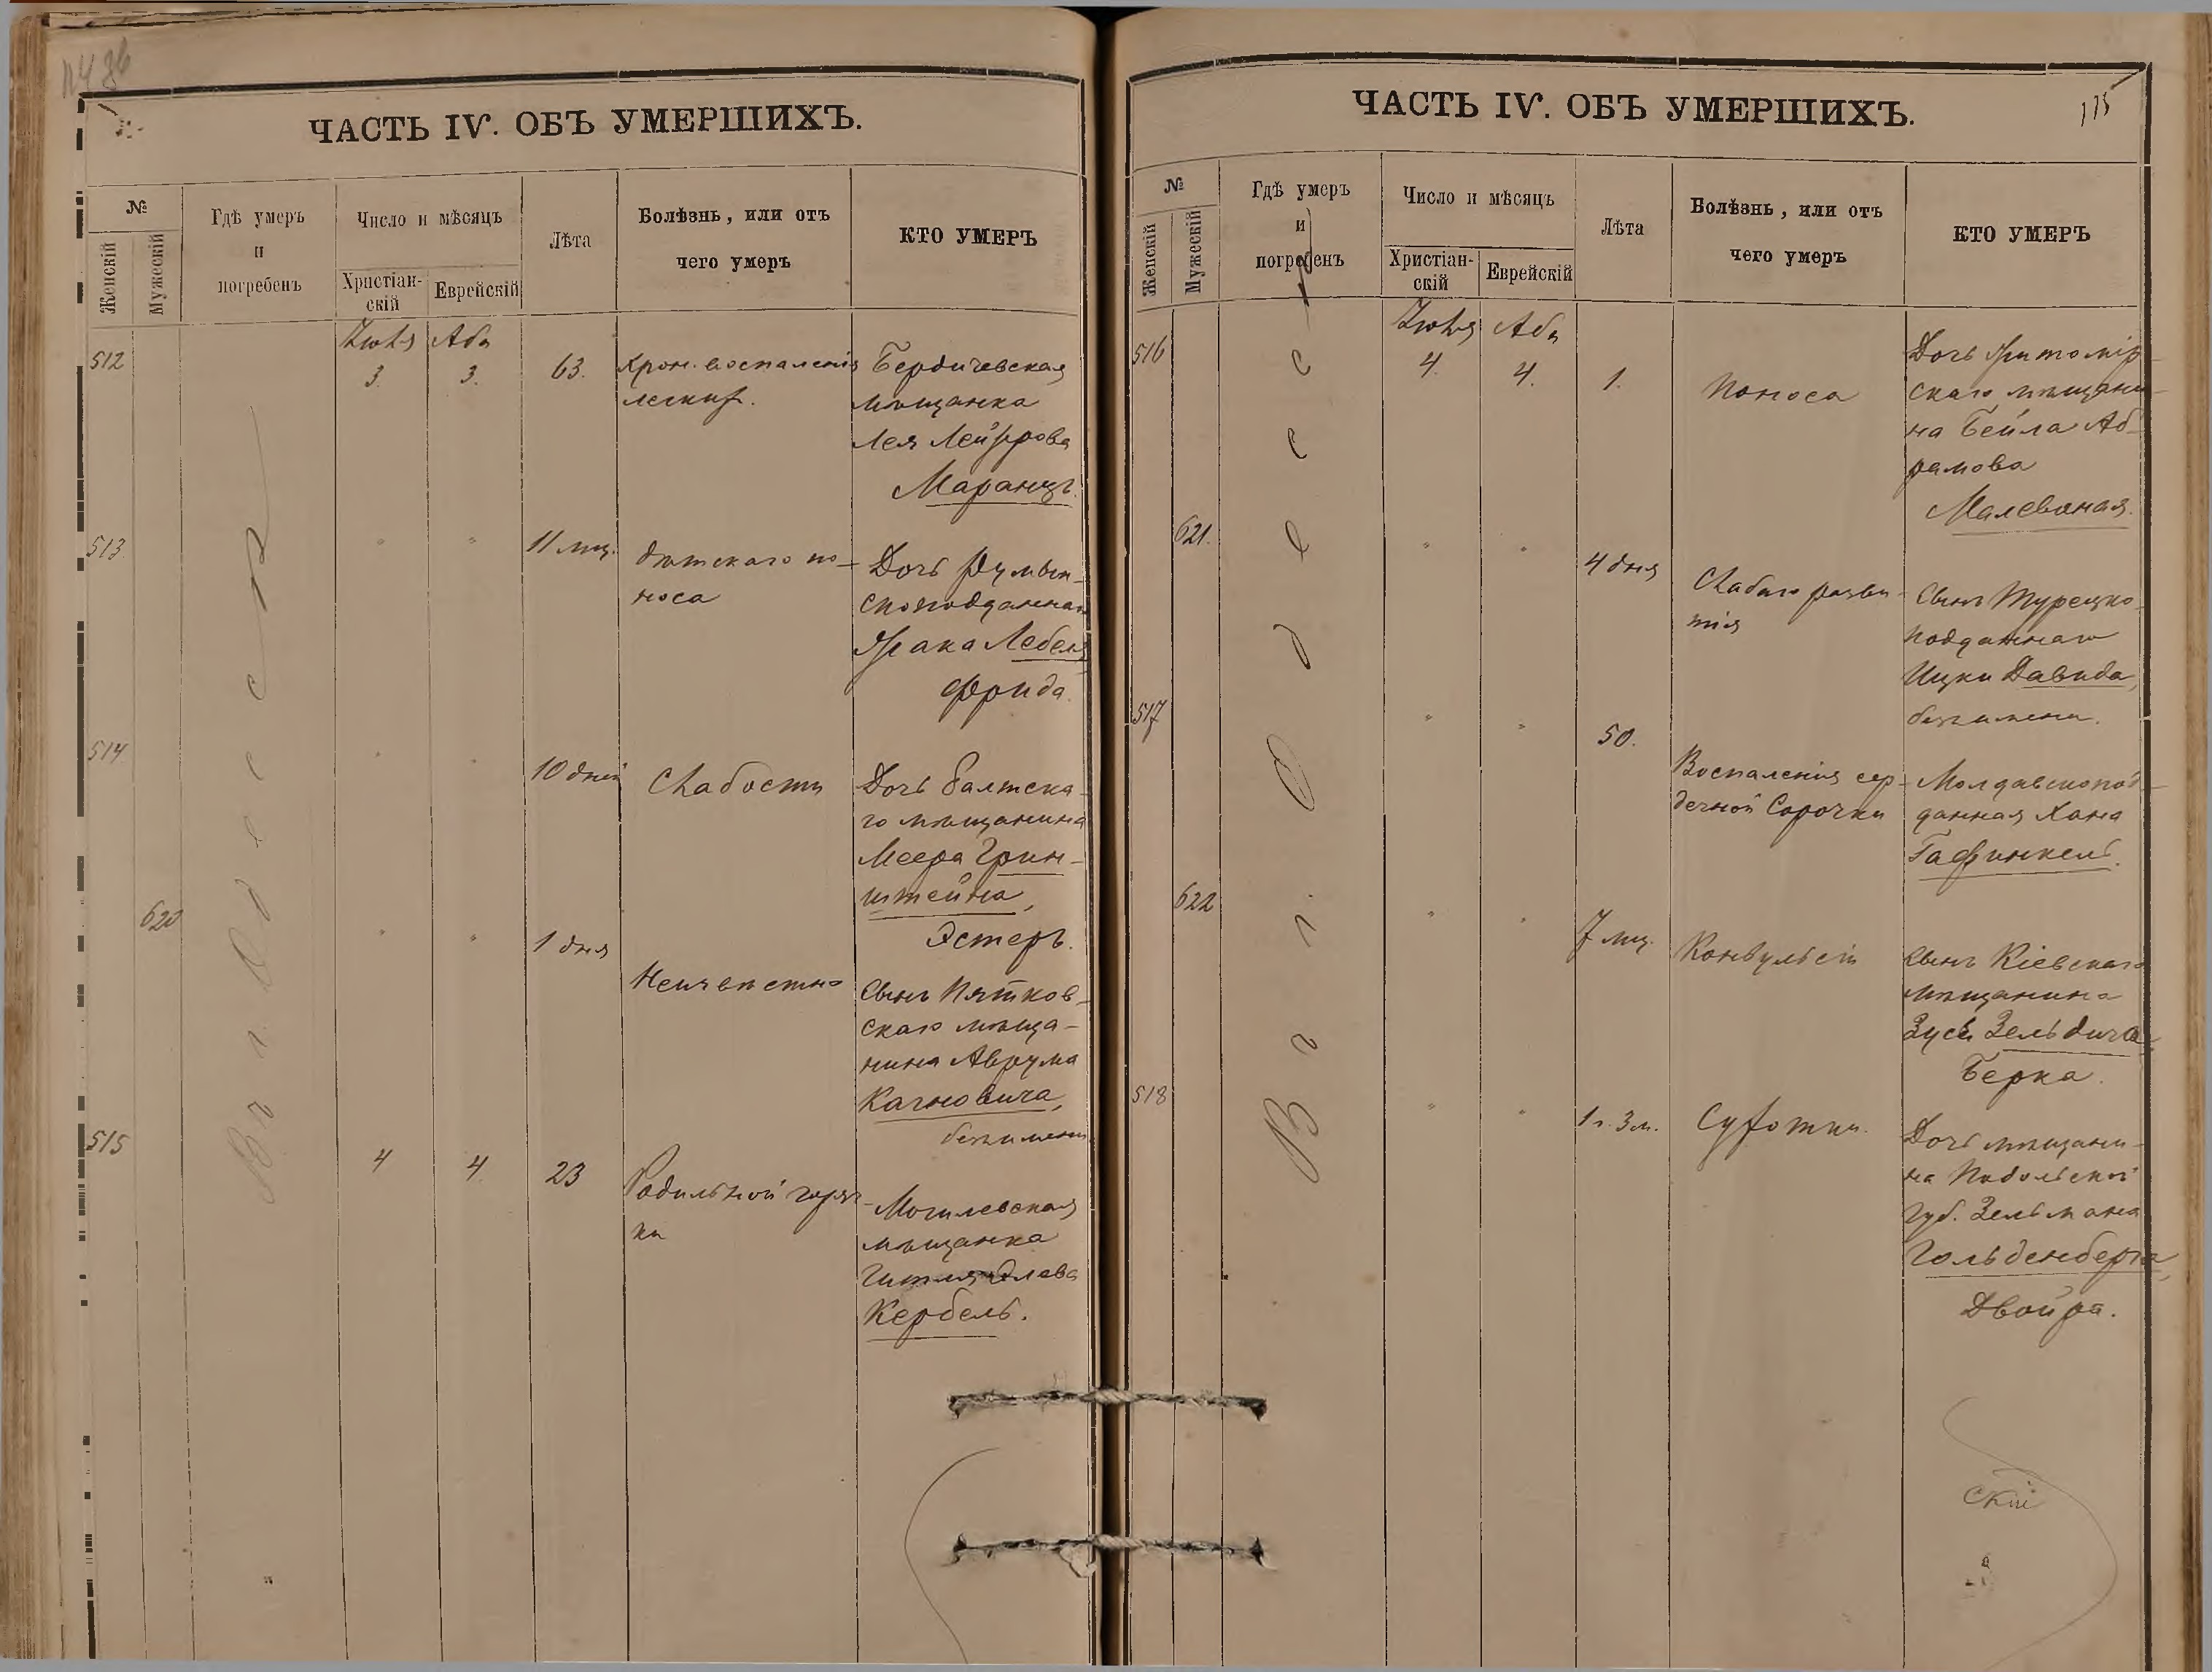 ЧАСТЬ IV. ОБЪ УМЕРШИХЪ.
№
Женскій
Мужескій
Гдѣ умеръ
и
погребенъ
Число и мѣсяцъ
Христіан-
скій
Еврейскій
Лѣта
Болѣзнь, или отъ
чего умеръ
КТО УМЕРЪ
Въ Одессѣ
Іюля Аба
512 3. 3. 63. Хрон. воспаленія Бердичевская
легкихъ. мѣщанка
Лея Лейзерова
Маранцъ.
513 " " 11 мц. дѣтскаго по- Дочь румын-
носа скоподданнаго
Лебель
Фрида.
514 " " 10 дней Слабости Дочь балтска-
го мѣщанина
Меера Грин-
штейна,
Эстеръ.
620 " " 1 дня Неизвѣстно Сынъ Пятков-
скаго мѣща-
нина Аврума
безъимени
515 4 4. 23 Родильной горяч- Могилевская
ки мѣщанка
Гитля
Кербель.
ЧАСТЬ IV. ОБЪ УМЕРШИХЪ.
175
№
Женскій
Мужескій
Гдѣ умеръ
и
погребенъ
Число и мѣсяцъ
Христіан-
скій
Еврейскій
Лѣта
Болѣзнь, или отъ
чего умеръ
КТО УМЕРЪ
Въ г. Одессѣ
Іюля Аба
516 4. 4. 1. Поноса Дочь Житомір-
скаго мѣщани-
на Бейла Аб-
рамова
Малеваная.
621. " " 4 дня Слабаго разви- Сынъ Турецко-
тія подданнаго
Ицки Давида,
безъимени.
517 " " 50. Воспаленія сер- Молдавскопод-
дечной Сорочки данная Хана
Гафинкель.
622 " " 7 мц. Конвульсіи Сынъ Кіевскаго
мѣщанина
Зуси Зельдича,
Берка.
518 " " 1 г. 3 м. Сухотки. Дочь мѣщани-
на Подольской
губ. Зельмана
Гольденберга,
Двойра.
скій